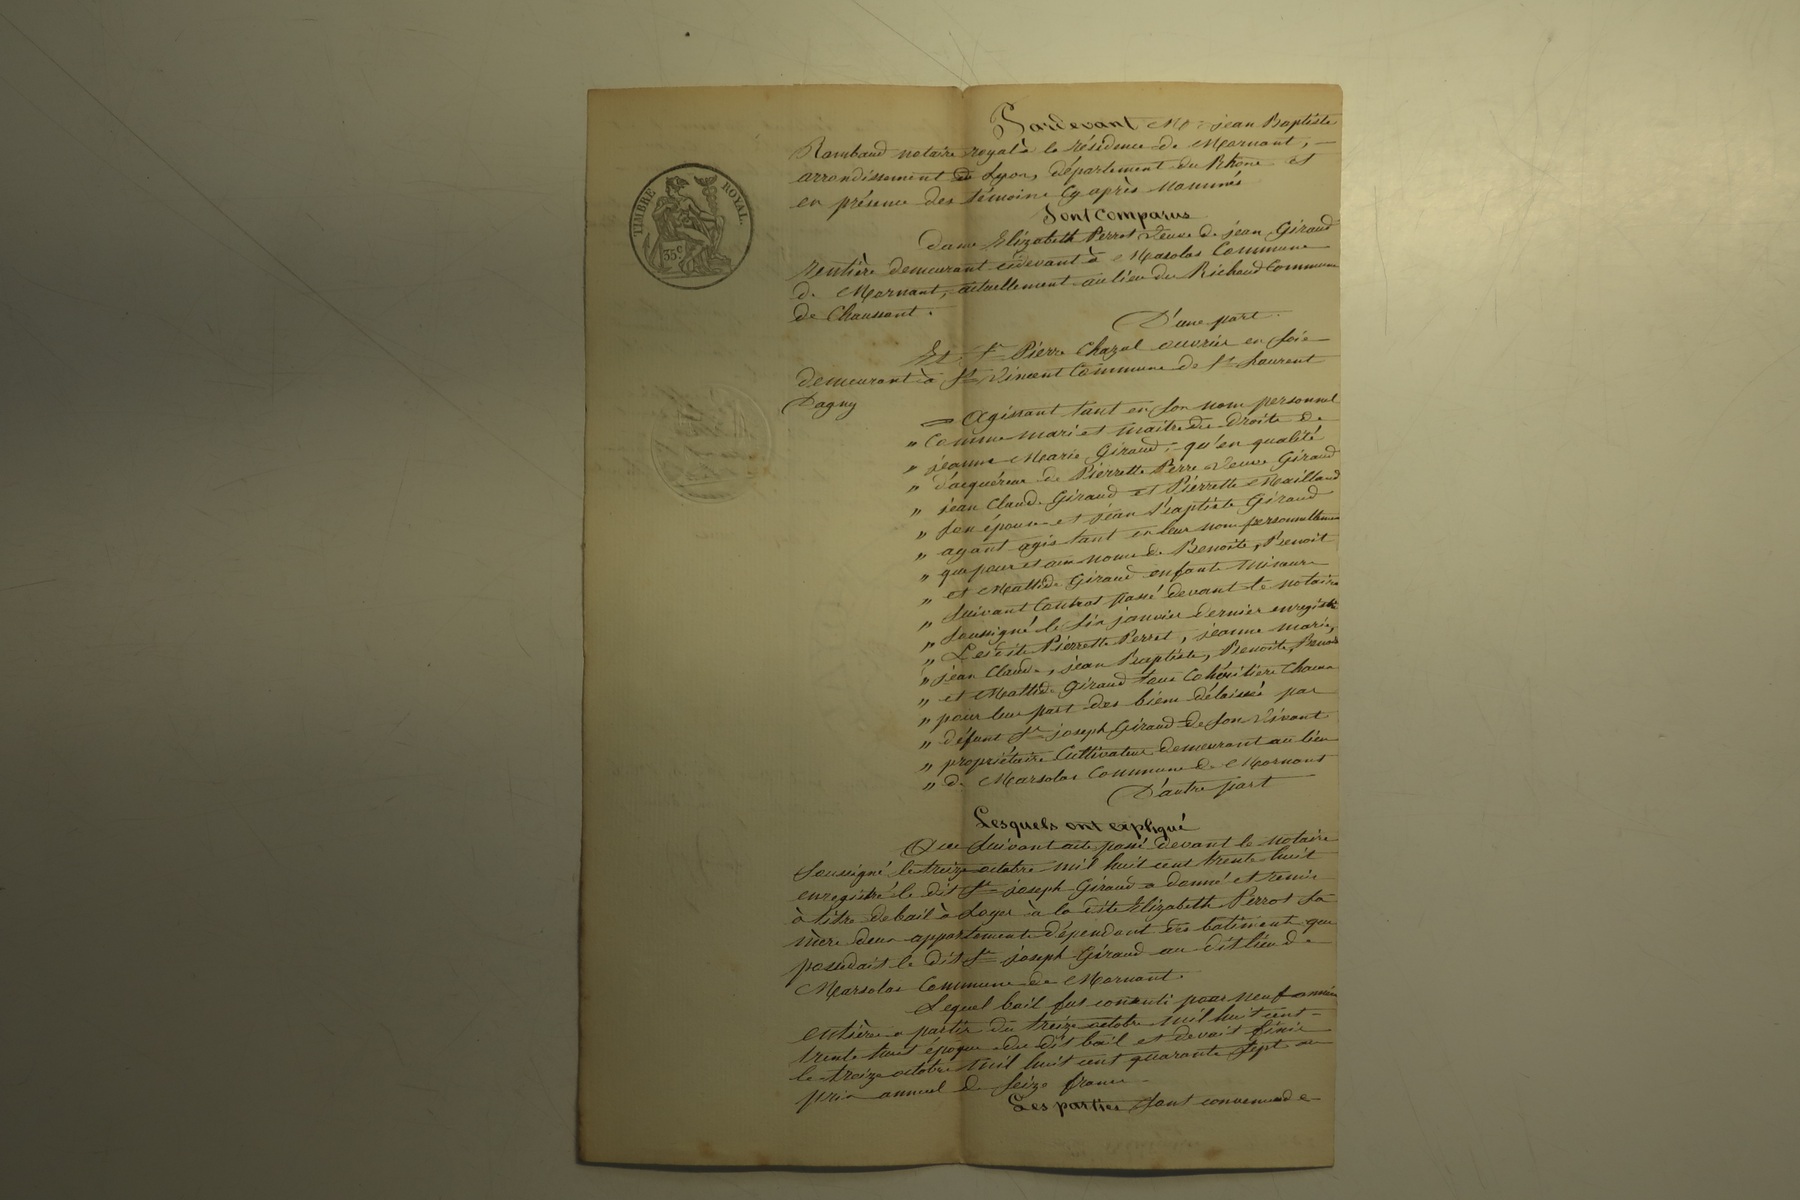 TIMBRE ROYAL
35c
Pardevant Me Jean Baptiste
Rambaud notaire royal à la résidence de Mornant,
arrondissement de Lyon, département du Rhône et
en présence des témoins cy après nommés
Sont Comparus
Dame Elizabeth Perret Veuve de jean Giraud
rentière demeurant cidevant à Marsolas Commune
de Mornant, actuellement au lieu du Richaud Commune
de Chaussant.
D'une part.
Et Sr Pierre Chazal ouvrier en soie
demeurant à St Vincent Commune de St Laurent
Dagny
= Agissant tant en son nom personnel
" Comme mari et maître des droits de
" jeanne Marie Giraud, qu'en qualité
" d'acquéreur de Pierrette Perre Veuve Giraud
" jean Claude Giraud et Pierrette Maillard
" son épouse et jean Baptiste Giraud
" ayant agis tant en leur nom personnellement
" que pour et au nom de Benoite, Benoit
" et Mathilde Giraud enfants mineurs
" suivant Contrat passé devant le notaire
" soussigné le six janvier dernier enregistré
" Lesdits Pierrette Perret, jeanne marie,
" jean Claude, jean Baptiste, Benoite, Benoit
" et Mathilde Giraud tous Cohéritiers Chacun
" pour leur part des biens délaissés par
" défunt Sr joseph Giraud de son Vivant
" propriétaire Cultivateur demeurant au lieu
" de Marsolas Commune de Mornant
D'autre part
Lesquels ont expliqué
Que suivant acte passé devant le notaire
soussigné le treize octobre mil huit cent trente huit
enregistré le dit Sr joseph Giraud a donné et remis
à titre de bail à Loyer à la dite Elizabeth Perret sa
mère deux appartements dépendant des batiment que
possédait le dit Sr joseph Giraud au dit lieu de
Marsolas Commune de Mornant.
Lequel bail fut consenti pour neuf années
entières a partir du treize octobre mil huit cent
trente huit époque du dit bail et devait finir
le treize octobre mil huit cent quarante sept au
prix annuel de seize francs
Les parties sont convenues de